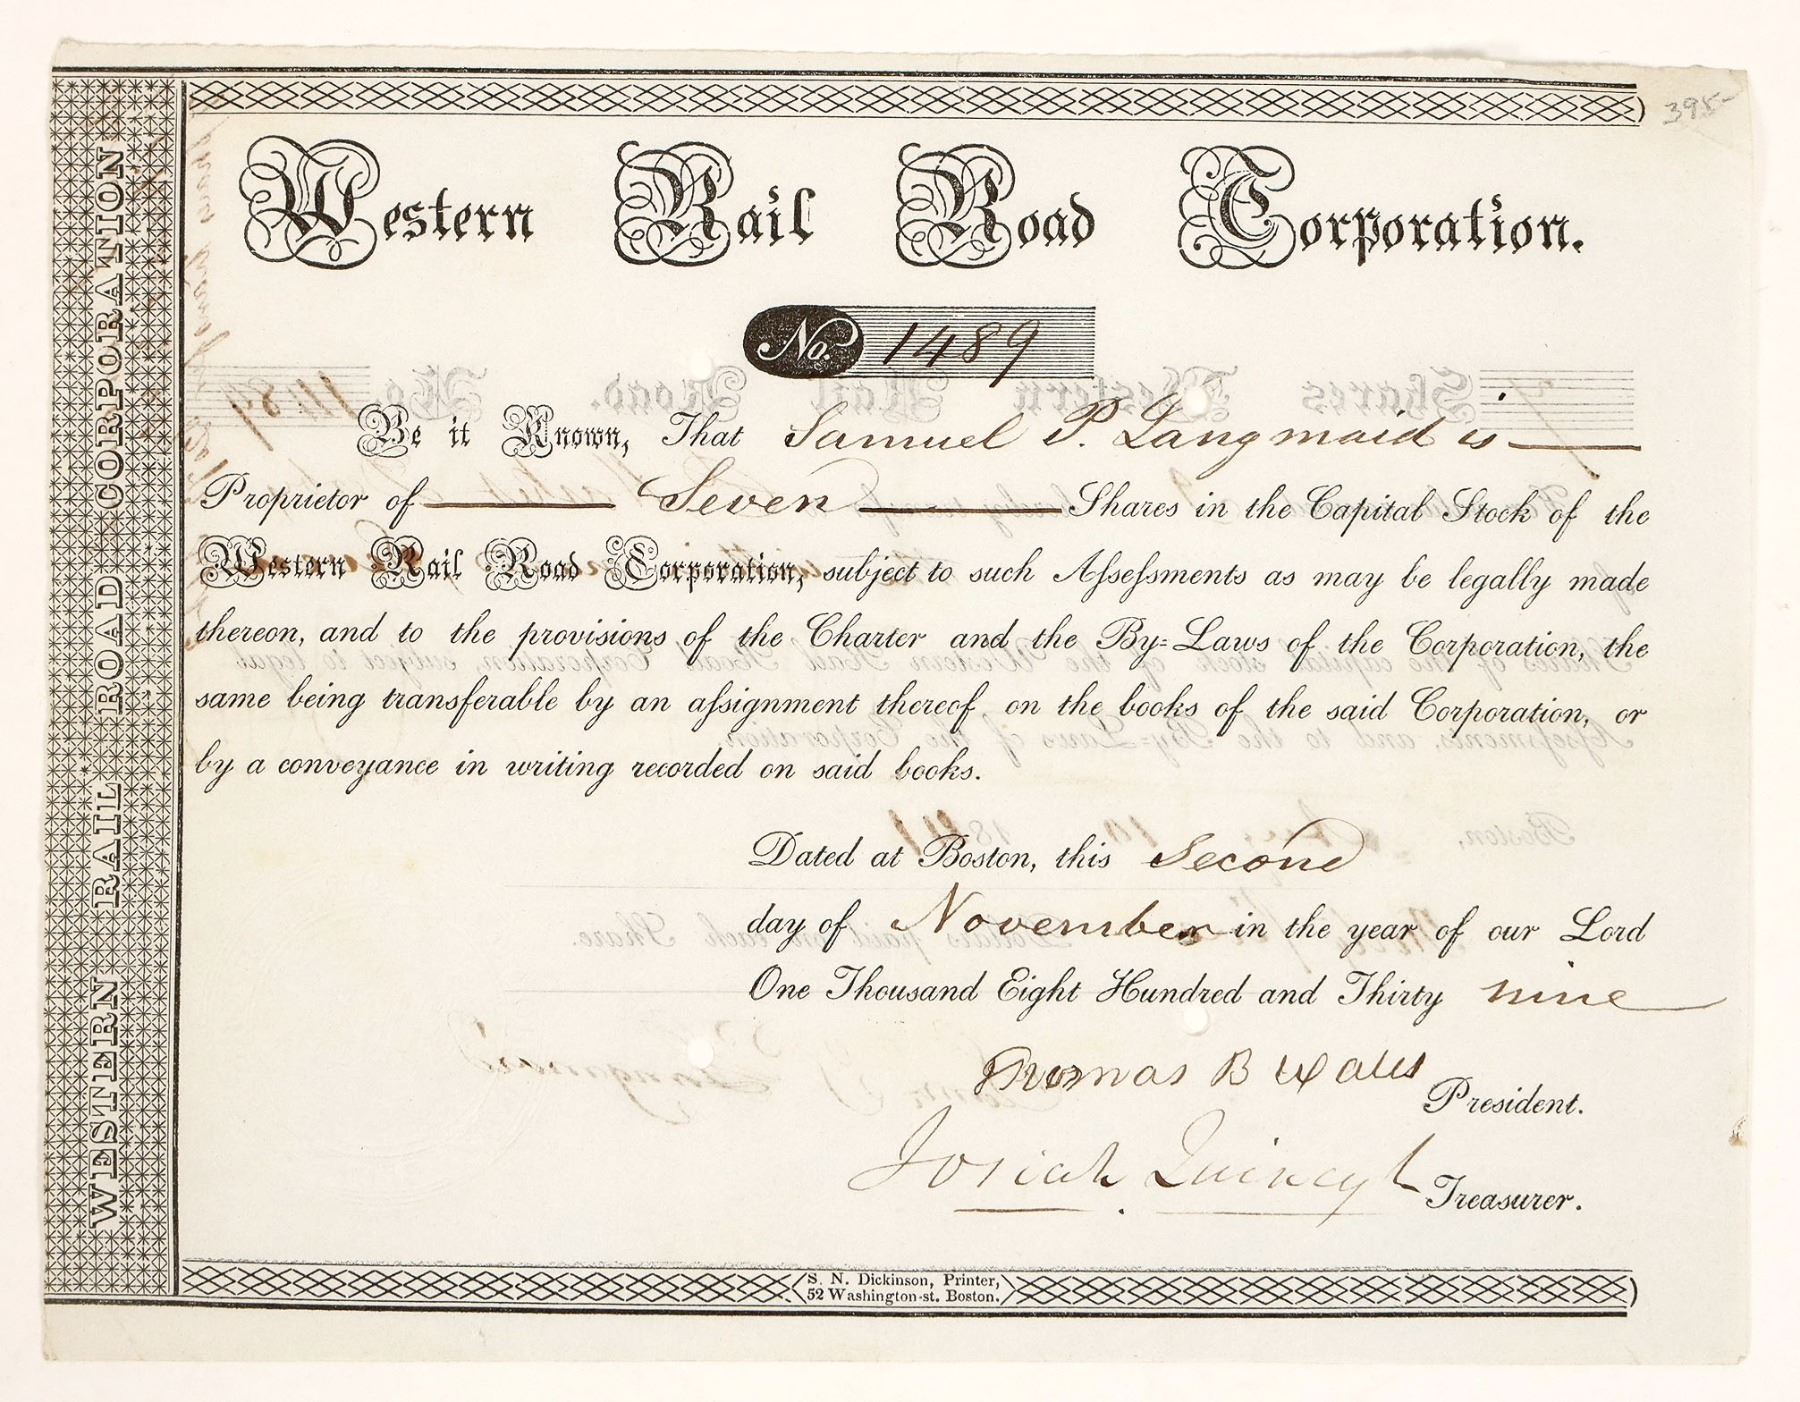 395-
Western Rail Road Corporation.
WESTERN RAIL ROAD CORPORATION
No. 1489
Be it Known, That Samuel P. Langmaid is
Proprietor of Seven Shares in the Capital Stock of the
Western Rail Road Corporation, subject to such Aſseſsments as may be legally made
thereon, and to the provisions of the Charter and the By=Laws of the Corporation, the
same being transferable by an aſsignment thereof on the books of the said Corporation, or
by a conveyance in writing recorded on said books.
Dated at Boston, this Second
day of November in the year of our Lord
One Thousand Eight Hundred and Thirty nine
Thomas B Wales President.
Josiah Quincy Jr Treasurer.
S. N. Dickinson, Printer,
52 Washington-st. Boston.